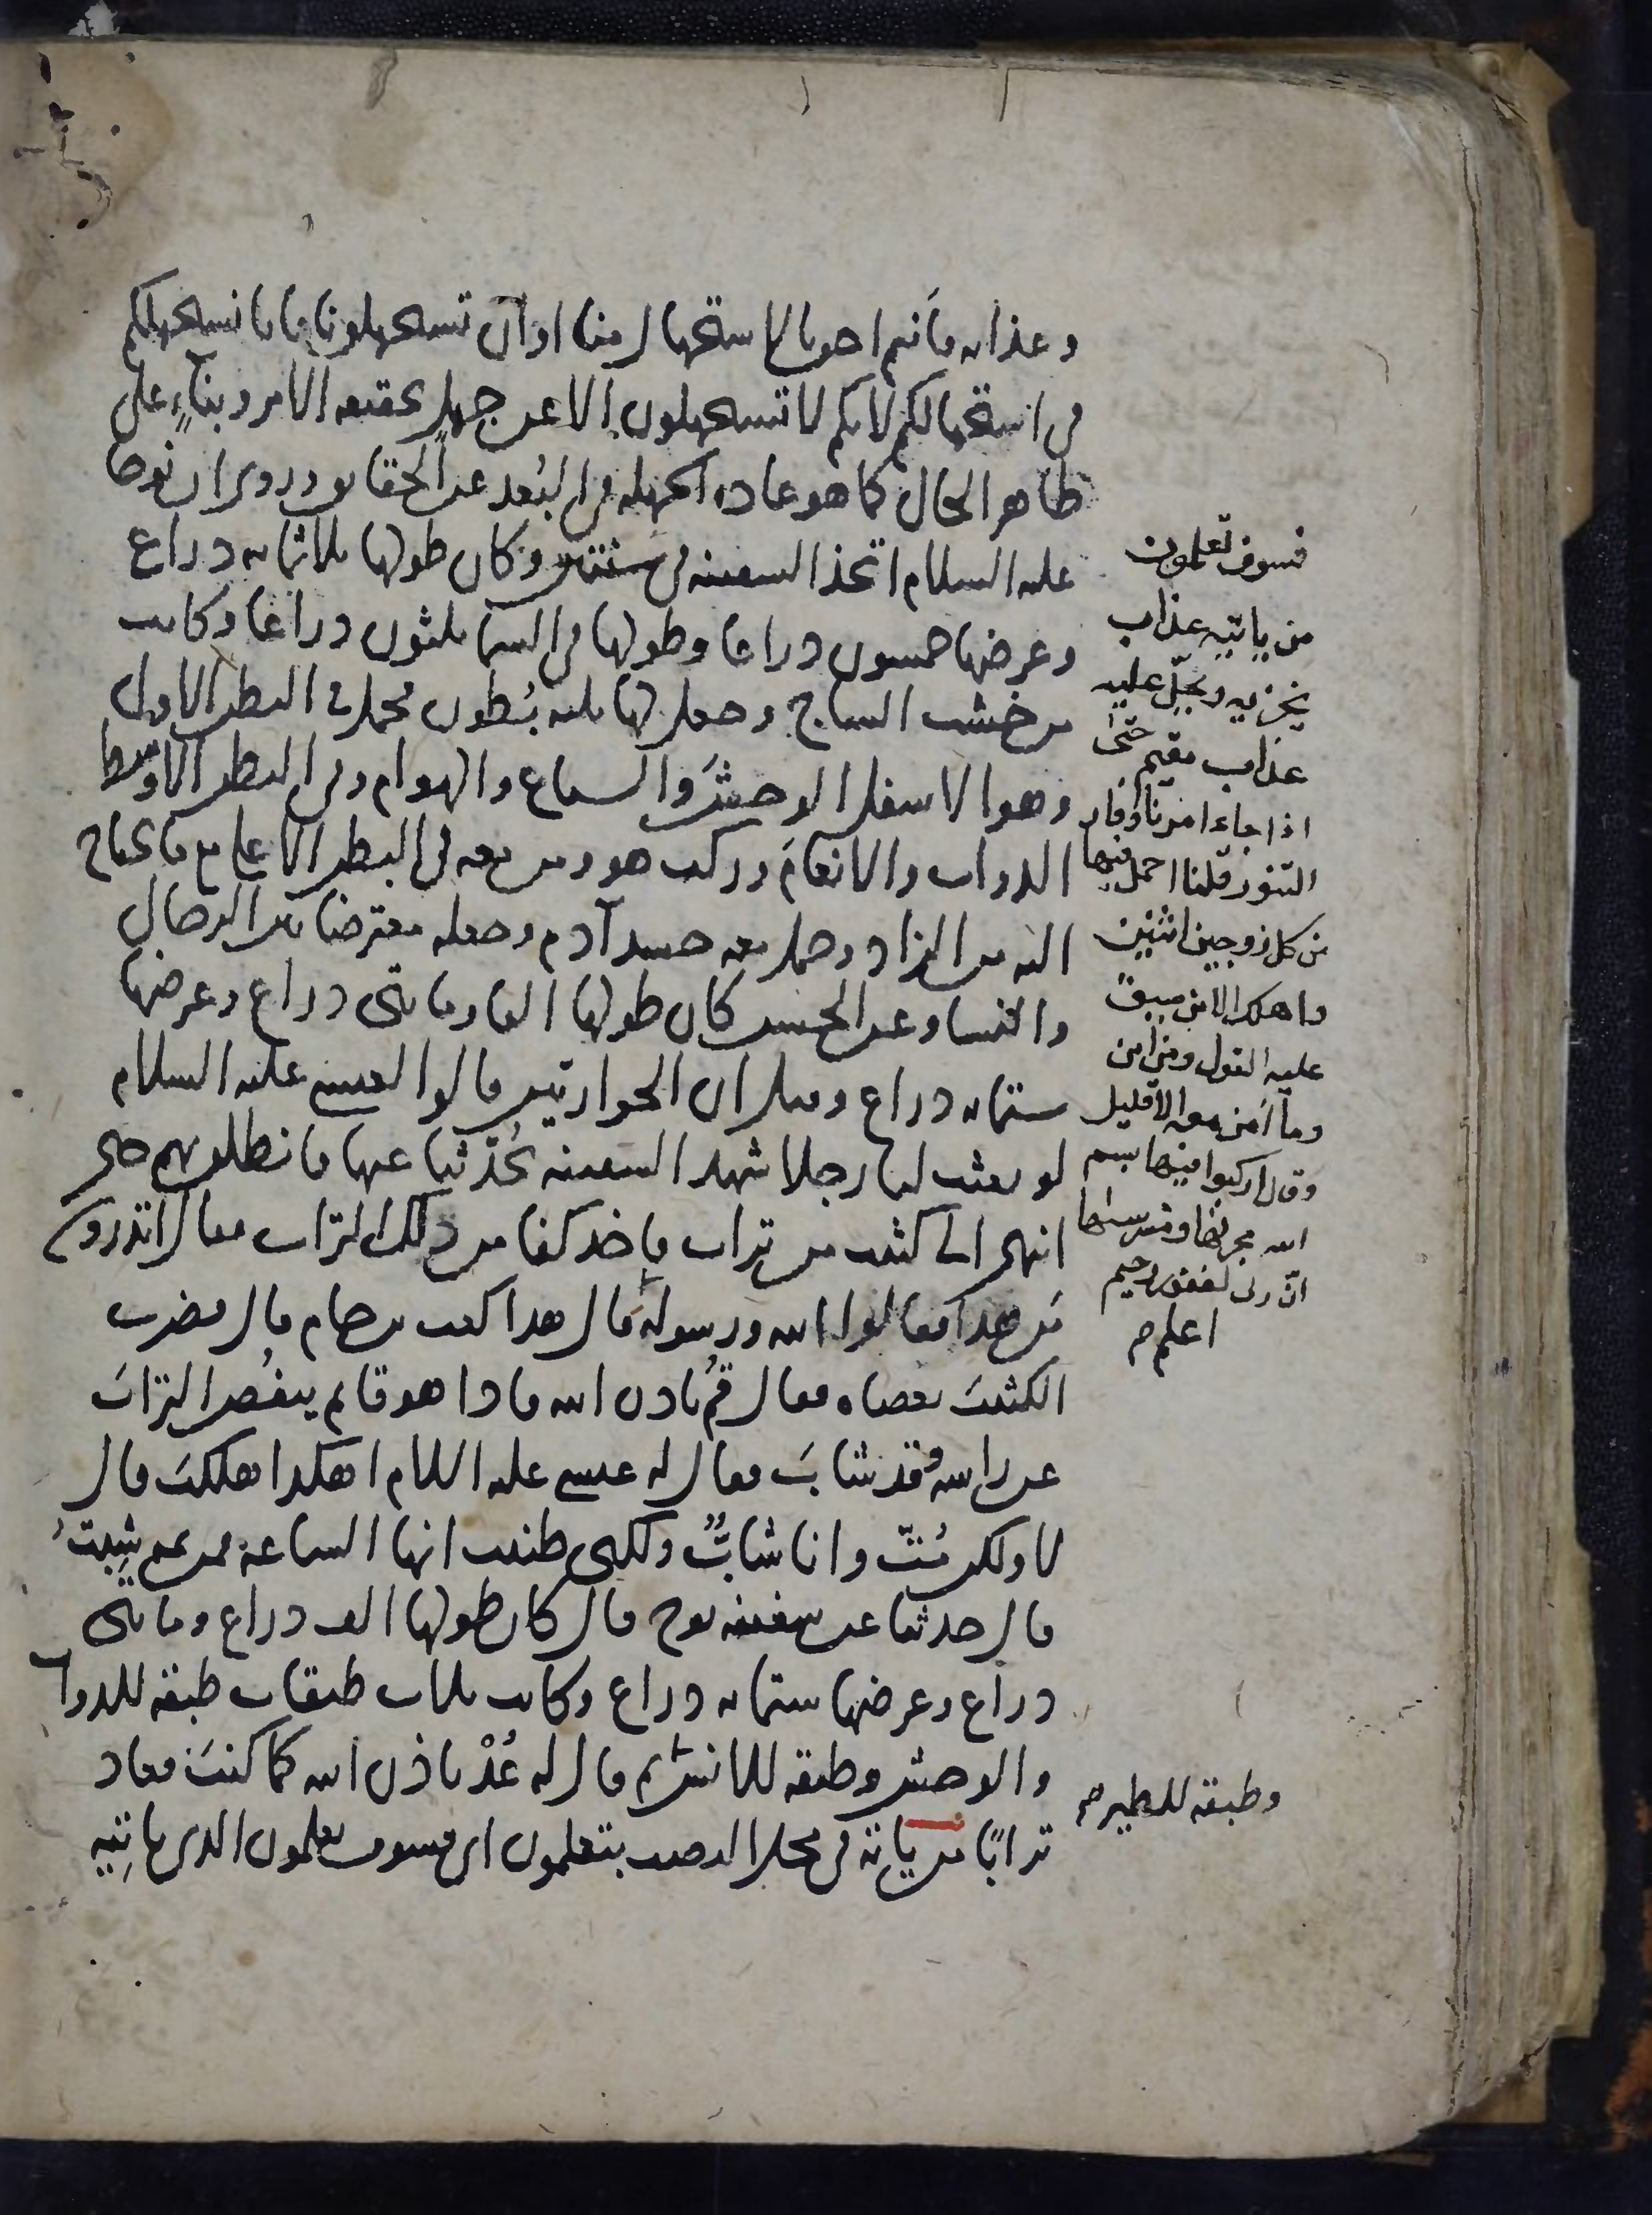 وعذابه فأنتم احوج بالاستجهال منا او ان تستجهلونا فانا نستجهلكم
في استجهالكم لانكم لا تستجهلون الا عن جهل بحقيقه الامر وبناءً على
ظاهر الحال كما هو عاده الجهله في البُعد عن الحقايق وروى ان نوحا
عليه السلام اتخذ السفينه في سنتين وكان طولها ثلاثمايه ذراع
وعرضها خمسون ذراعا وطولها في السما ثلثون ذراعا وكانت
من خشب الساج وجعل لها ثلثه بُطون فحمل في البطن الاول
وهو الاسفل الوحشَ والسباع والهوام وفي البطن الاوسط
الدواب والانعامَ وركب هو ومن معه في البطن الاعلى مع ما يحتاج
اليه من الزاد وحمل معه جسد آدم وجعله معترضا بين الرجال
والنسا وعن الحسن كان طولها الفا ومايتى ذراع وعرضها
ستمايه ذراع وقيل ان الحواريين قالوا لعيسى عليه السلام
لو بعثت لنا رجلا شهد السفينه يُحدّثنا عنها فانطلق بهم حتى
انتهى الى كثيب من تراب فاخذ كفا من ذلك التراب فقال اتدرون
مَن هذا فقالوا الله ورسوله قال هذا كعب بن حام قال فضرب
الكثيبَ بعصاه فقال قُم باذن الله فاذا هو قايم ينفُض الترابَ
عن راسه وقد شابَ فقال له عيسى عليه السلام اهكذا هلكتَ قال
لا ولكن مُتّ وانا شابٌّ ولكنى ظننت انها الساعة فمن ثم شِبتُ
قال حدثنا عن سفينه نوح قال كان طولها الف ذراع ومايتى
ذراع وعرضها ستمايه ذراع وكانت ثلاث طبقات طبقه للدواب
والوحش وطبقه للانس ثم قال له عُدْ باذن الله كما كنتَ فعاد
ترابًا من ياتيه في محل النصب بتعلمون اى فسوف تعلمون الذى ياتِيه
فسوف تعلمون
من ياتيه عذاب
يخزيه ويحلّ عليه
عذاب مقيم حتى
اذا جاء امرنا وفار
التنور قلنا احمل فيها
من كل زوجين اثنين
واهلك الا من سبق
عليه القول ومن امن
وما آمن معه الا قليل
وقال اركبوا فيها بسم
الله مجريها ومرسىها
انّ ربى لغفور رحيم
اعلم م
وطبقه للطير م